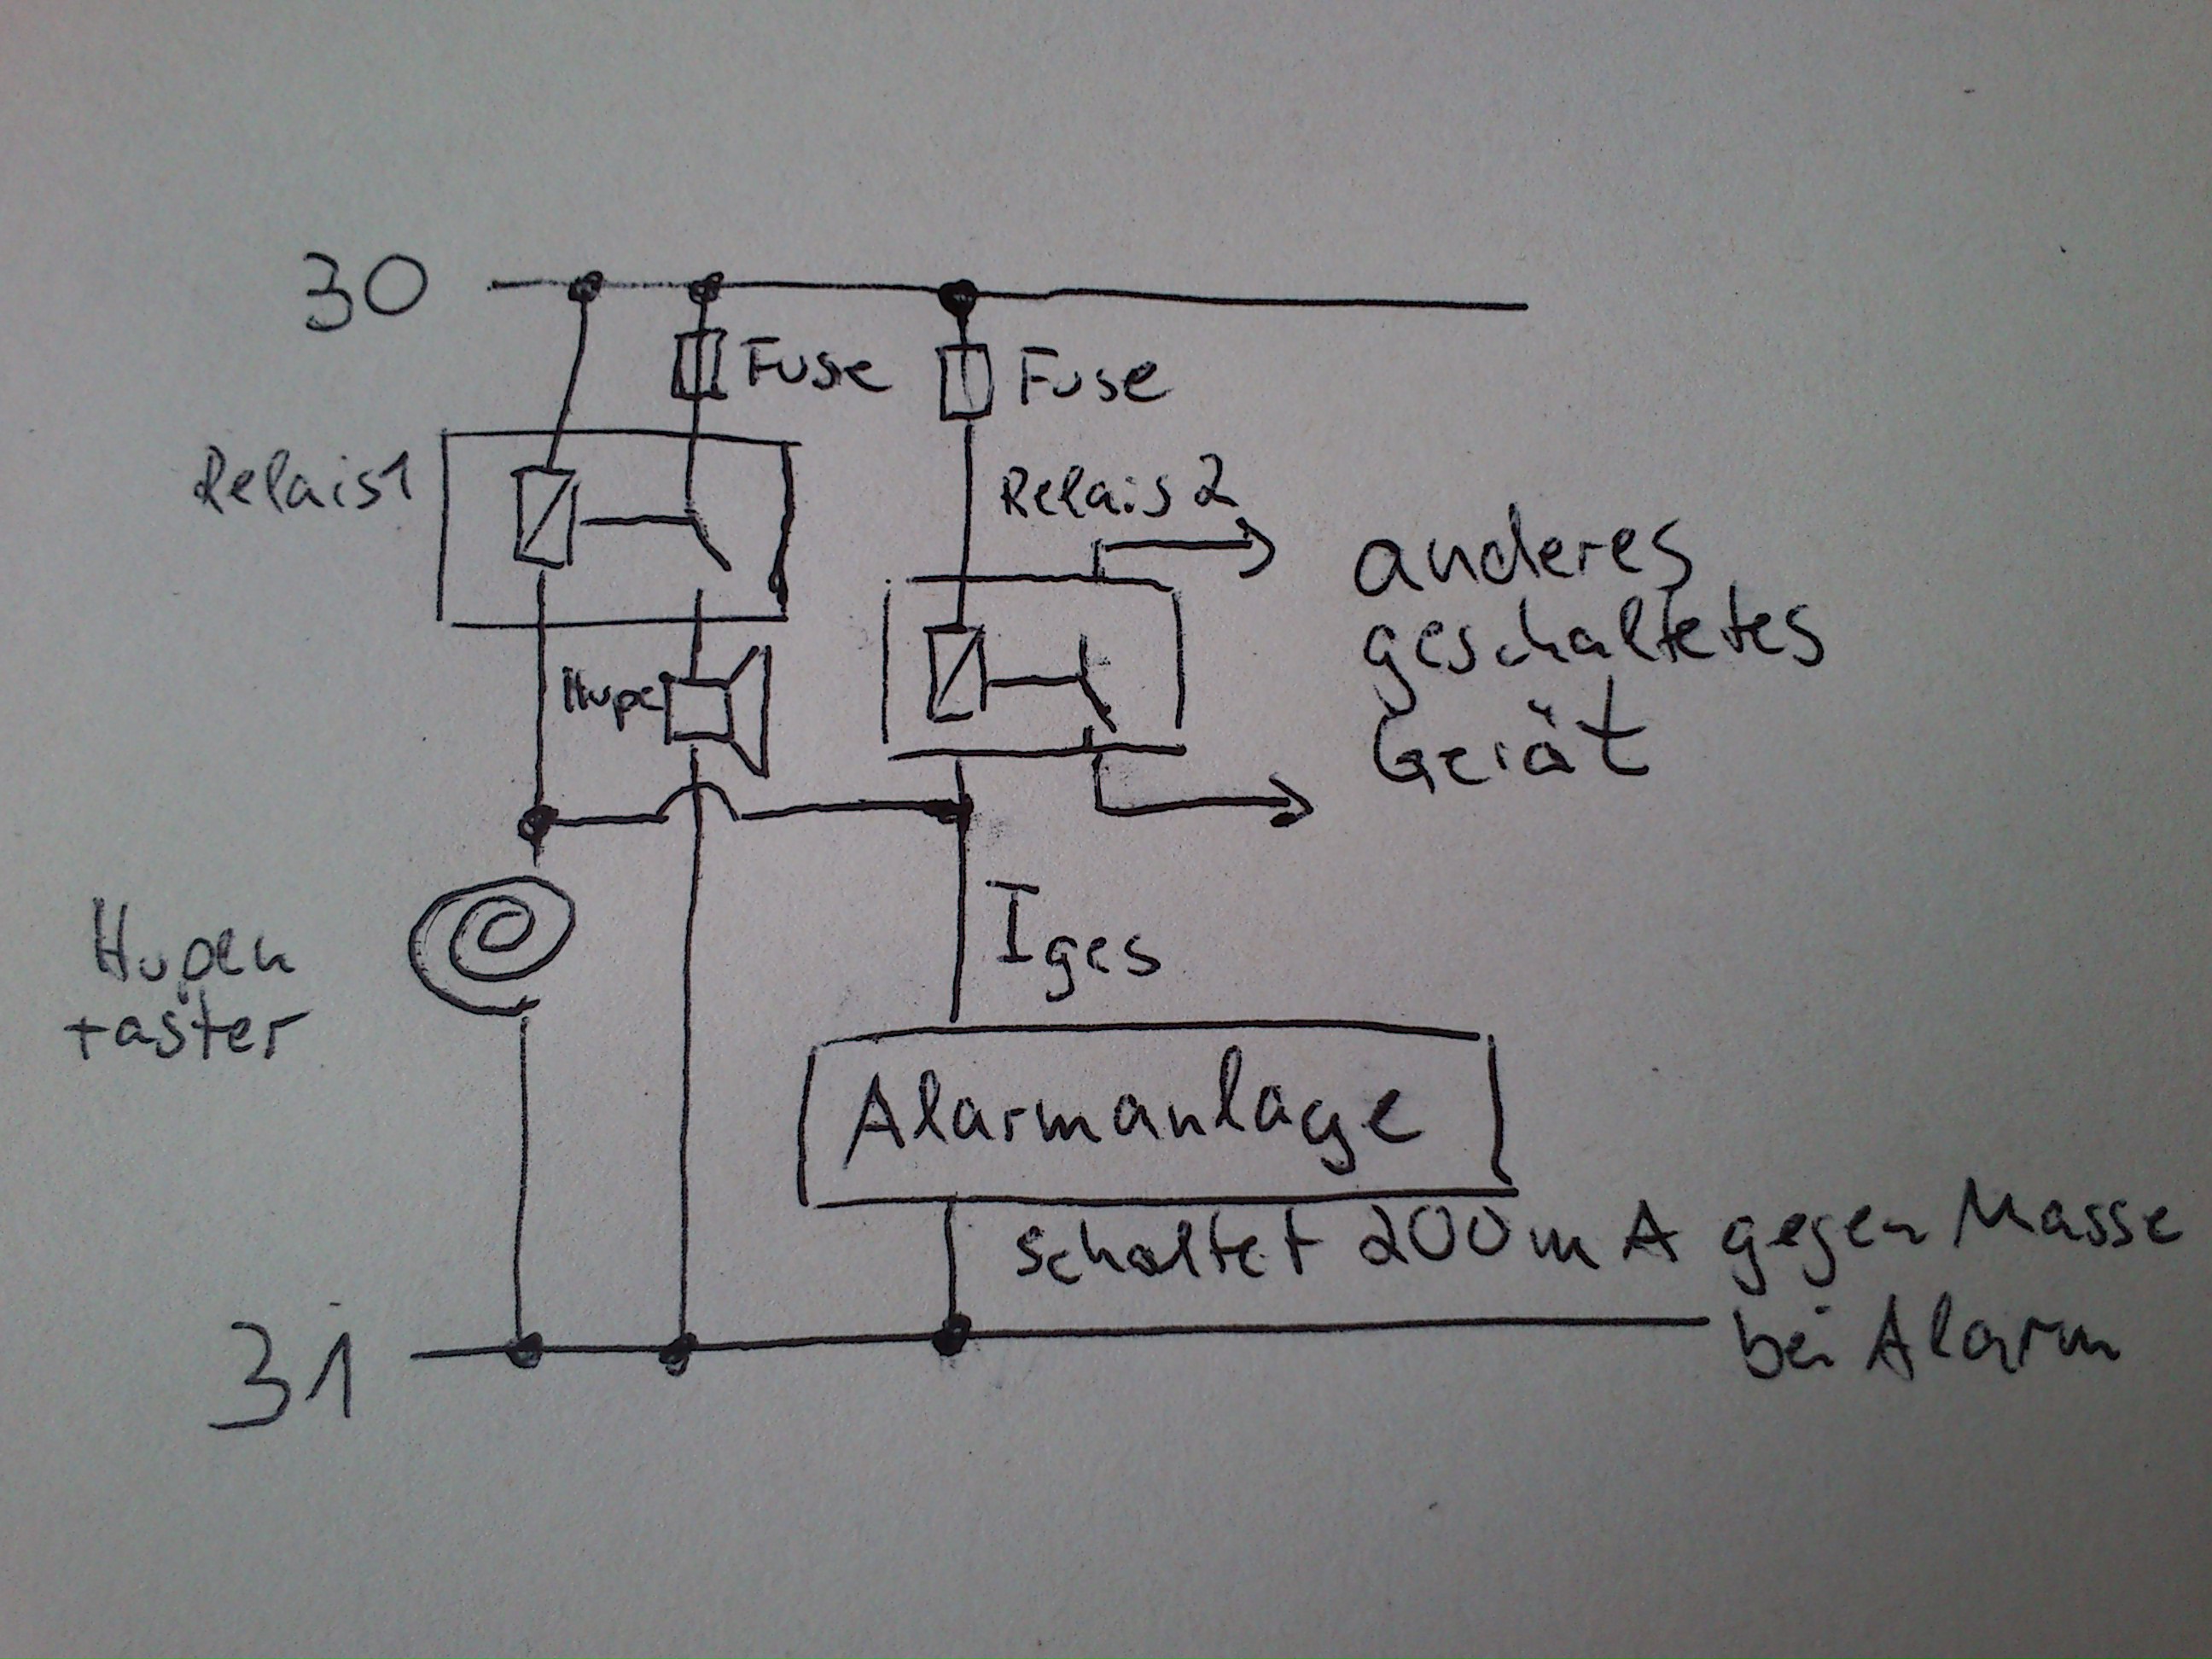 30
Fuse
Fuse
Relais1
Relais 2
anderes
geschaltetes
Gerät
Hupe
Hupen
taster
Iges
Alarmanlage
schaltet 200mA gegen Masse
bei Alarm
31